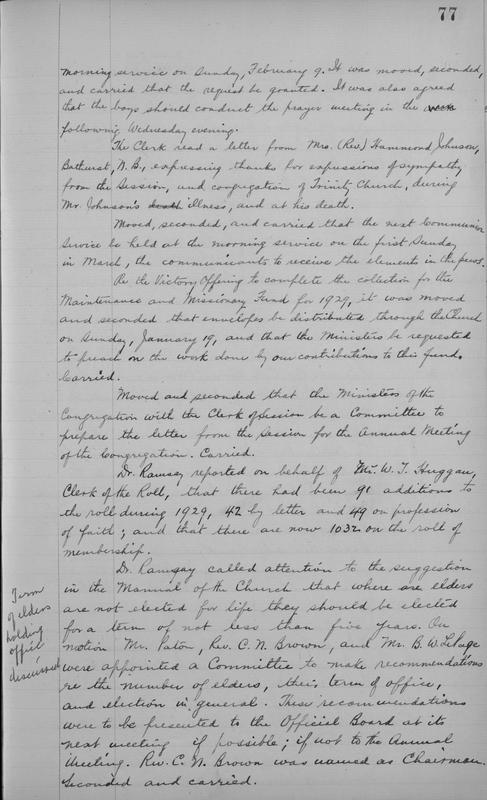 77
morning service on Sunday, February 9. It was moved, seconded,
and carried that the request be granted. It was also agreed
that the boys should conduct the prayer meeting in the week
following Wednesday evening.
The Clerk read a letter from Mrs. (Rev.) Hammond Johnson,
Bathurst, N.B., expressing thanks for expressions of sympathy
from the Session, and congregation of Trinity Church, during
Mr. Johnson's death illness, and at his death.
Moved, seconded, and carried that the next Communion
Service be held at the morning service on the first Sunday
in March, the communicants to receive the elements in the pews.
Re the Victory Offering to complete the collection for the
Maintenance and Missionary Fund for 1929, it was moved
and seconded that envelopes be distributed through the Church
on Sunday, January 19, and that the Ministers be requested
to preach on the work done by our contributions to this fund.
Carried.
Moved and seconded that the Ministers of the
Congregation with the Clerk of Session be a Committee to
prepare the letter from the Session for the Annual Meeting
of the Congregation. Carried.
Dr. Ramsay reported on behalf of Mr. W. T. Huggan,
Clerk of the Roll, that there had been 91 additions to
the roll during 1929, 42 by letter and 49 on profession
of faith; and that there are now 1032 on the roll of
membership.
Dr. Ramsay called attention to the suggestion
in the Manual of the Church that where are elders
are not elected for life they should be elected
for a term of not less than five years. On
motion Mr. Paton, Rev. C. N. Brown, and Mr. B. W. LePage
were appointed a Committee to make recommendations
re the number of elders, their term of office,
and election in general. These recommendations
were to be presented to the Official Board at its
next meeting if possible; if not to the Annual
Meeting. Rev. C. N. Brown was named as Chairman.
Seconded and carried.
Term
of elders
holding
office
discussed